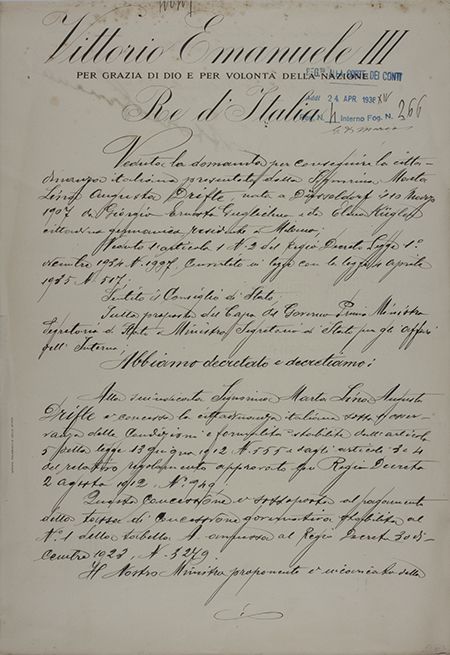 Vittorio Emanuele III
PER GRAZIA DI DIO E PER VOLONTÀ DELLA NAZIONE
REG. ALLA CORTE DEI CONTI
Re d'Italia
Addì 24 APR 1936 XIV
Reg. N. 4 Interno Fog. N. 266
Veduta la domanda per conseguire la citta-
dinanza italiana presentata dalla Signorina Marta
Lina Augusta Drifte nata a Düsseldorf il 10 Marzo
1907 da Giorgio Ernesto Guglielmo e da Clara
cittadina germanica residente a Milano;
Veduto l'articolo 1 N. 2 del Regio Decreto Legge 1°
dicembre 1934 N. 1997, convertito in legge con la legge 4 aprile
1935 N. 517;
Sentito il Consiglio di Stato;
Sulla proposta del Capo del Governo Primo Ministro
Segretario di Stato e Ministro Segretario di Stato per gli affari
dell'Interno;
Abbiamo decretato e decretiamo:
Alla summenzionata Signorina Marta Lina Augusta
Drifte è concessa la cittadinanza italiana sotto l'osser-
vanza delle condizioni e formalità stabilite dall'articolo
5 della legge 13 giugno 1912 N. 555 e dagli articoli 3 e 4
del relativo regolamento approvato con Regio Decreto
2 agosto 1912, N. 949.
Questa concessione è sottoposta al pagamento
della tassa di concessione governativa stabilita al
N. 1 della tabella A. annessa al Regio Decreto 30 di-
cembre 1923, N. 3279.
Il Nostro Ministro proponente è incaricato della